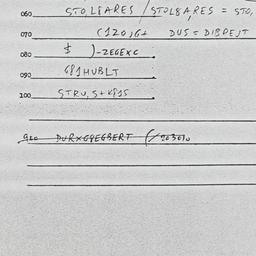 060 STO,L8ARES / STOL8A,RES = STO,
070 (120)6+ DUS = DISPEJT
080 $ )-ZEGEXC
090 G81HUBLT
100 STRU,S+K81S
DURXGYEGBERT